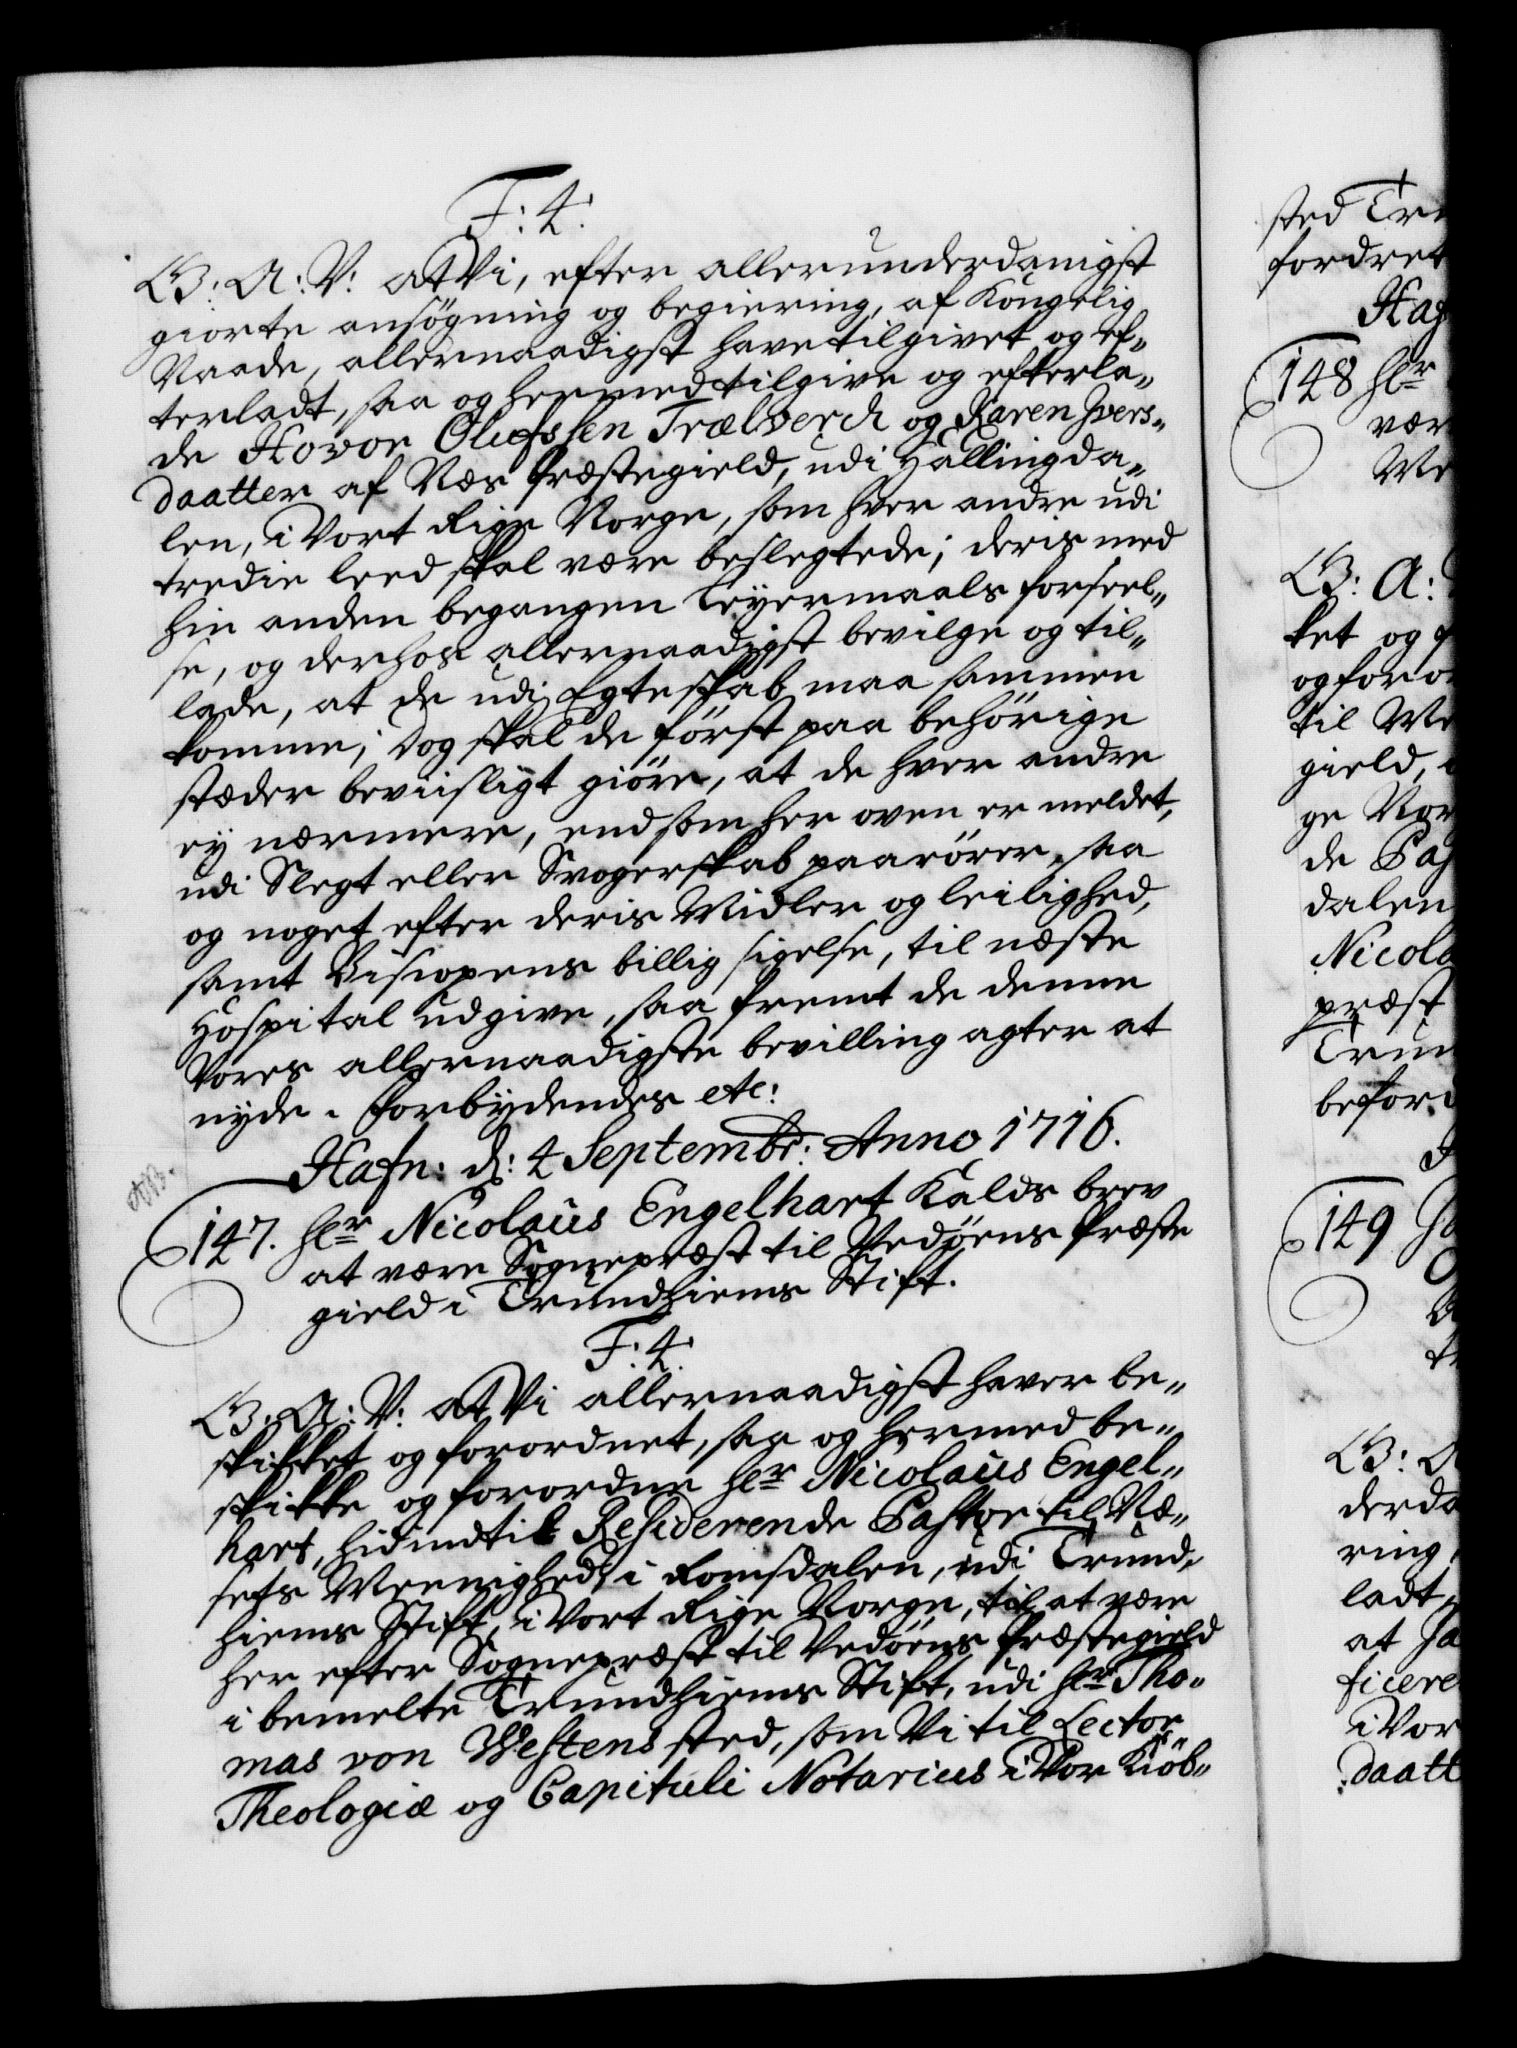 F: 4.
G: A: V: at Vi, efter allerunderdanigst
giorte ansøgning og begiering, af Kongelig
Naade, allernaadigst have tilgivet og ef„
terladt, saa og hermed tilgive og efterla„
de Hovor Olufssen Trælverch og Karen Jvers„
daatter af Næs Præstegield, udi Hallingda„
len, i Vort Rige Norge, som hver andre udi
tredie leed skal være beslegtede; deris med
hin anden begangen Leyermaals forseel„
se, og derhos allernaadigst bevilge og til„
lade, at de udj Egteskab maa sammen
komme; dog skal de først paa behørige
stæder beviisligt giøre, at de hver andre
ey nærmere, end som her oven er meldet,
udi Slegt eller Svogerskab paarører, saa
og noget efter deris Midler og leilighed,
samt Bispens billig sigelse, til næste
Hospital udgive, saa fremt de denne
Vores allernaadigste bevilling agter at
nyde. Forbydendes etc:
Hafn: d: 4 Septembr: Anno 1716.
NB.
147. Hr Nicolaus Engelhart Kalds brev
at være Sognepræst til Vedøens Præste
gield i Trundhiems Stift.
F: 4.
G: A: V: at Vi allernaadigst haver be„
skikket og forordnet, saa og hermed be„
skikke og forordne Hr Nicolaus Engel„
hart, hidindtil Residerende Pastor til Næ„
sets Meenighed i Romsdalen, udi Trund„
hiems Stift, i Vort Rige Norge, til at være
her efter Sognepræst til Vedøens Præstegield
i bemelte Trundhiems Stift, udi Hr Tho„
mas von Westens sted, som Vi til Lector
Theologiæ og Capituli Notarius i Vor Kiöb„
sted Tru
fordret
Haf
148 Hr
vær
Me
G: A:
ket og f
og foror
til Me
gield,
ge Nor
de Pas
dalen
Nicola
præst
Trun
beford
149
G: A
derda
ring
ladt
at Ja
ficere
i Vor
daatt